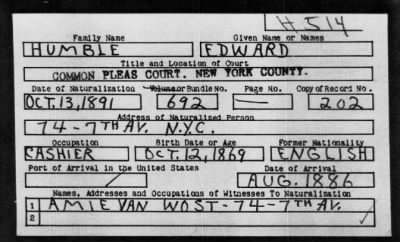 H 514
Family Name Given Name or Names
HUMBLE EDWARD
Title and Location of Court
COMMON PLEAS COURT. NEW YORK COUNTY.
Date of Naturalization Volume or Bundle No. Page No. Copy of Record No.
OCT. 13, 1891 692 — 202
Address of Naturalized Person
74 - 7TH AV. N.Y.C.
Occupation Birth Date or Age Former Nationality
CASHIER OCT. 12, 1869 ENGLISH
Port of Arrival in the United States Date of Arrival
/ AUG. 1886
Names, Addresses and Occupations of Witnesses To Naturalization
1 AMIE VAN WOST - 74 - 7TH AV.
2 /